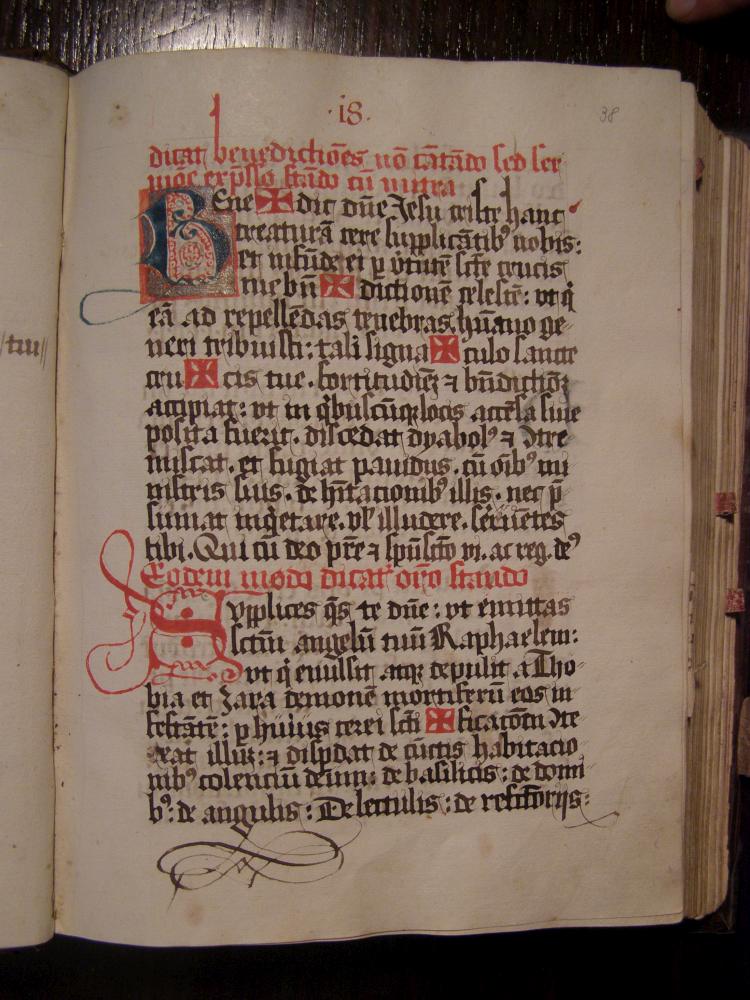 ·i8· 38
dicat benedictiões nō cātādo sed ser
mōe exp̄sso stādo cū mitra
BEne ✠ dic dūe Jesu criste hanc
creaturā cere supplicātibꝰ nobis:
et infūde ei ꝑ v̓tutē scē crucis
tue bn̄ ✠ dictionē celestē: vt q̄
eā ad repellēdas tenebras hūano ge-
neri tribuisti: tali signa ✠ culo sancte
cru ✠ cis tue. fortitudīeꝫ ⁊ bn̄dictiōꝫ
accipiat: vt in q̓buscūqꝫ locis accēsa siue
posita fuerit. discedat dyabolꝰ ⁊ ɔtre
miscat. et fugiat pauidus. cū oībꝰ mi
nistris suis. de hītacionibꝰ illis. nec p̄
sumat inq̓etare. vl̓ illudere. seruiētes
tibi. Qui cū deo pr̄e ⁊ spūscto vi. ac reg. deꝰ
Eodem modo dicat᷑ oro stando
SVpplices q̄s te dūe: vt emittas
sctm̄ angelū tuū Raphaelem:
vt q̄ euulsit atqꝫ depulit a Tho
bia et Zara demonē mortiferū eos in
festātē: ꝑ huius cerei scti ✠ ficacōm ɔte
rat illūꝫ: ⁊ disp̄dat de cūctis habitacio
nibꝰ colenciū deum: de basilicis: de domi
bꝰ: de angulis: De lectulis: de refectōrijs:
tuu